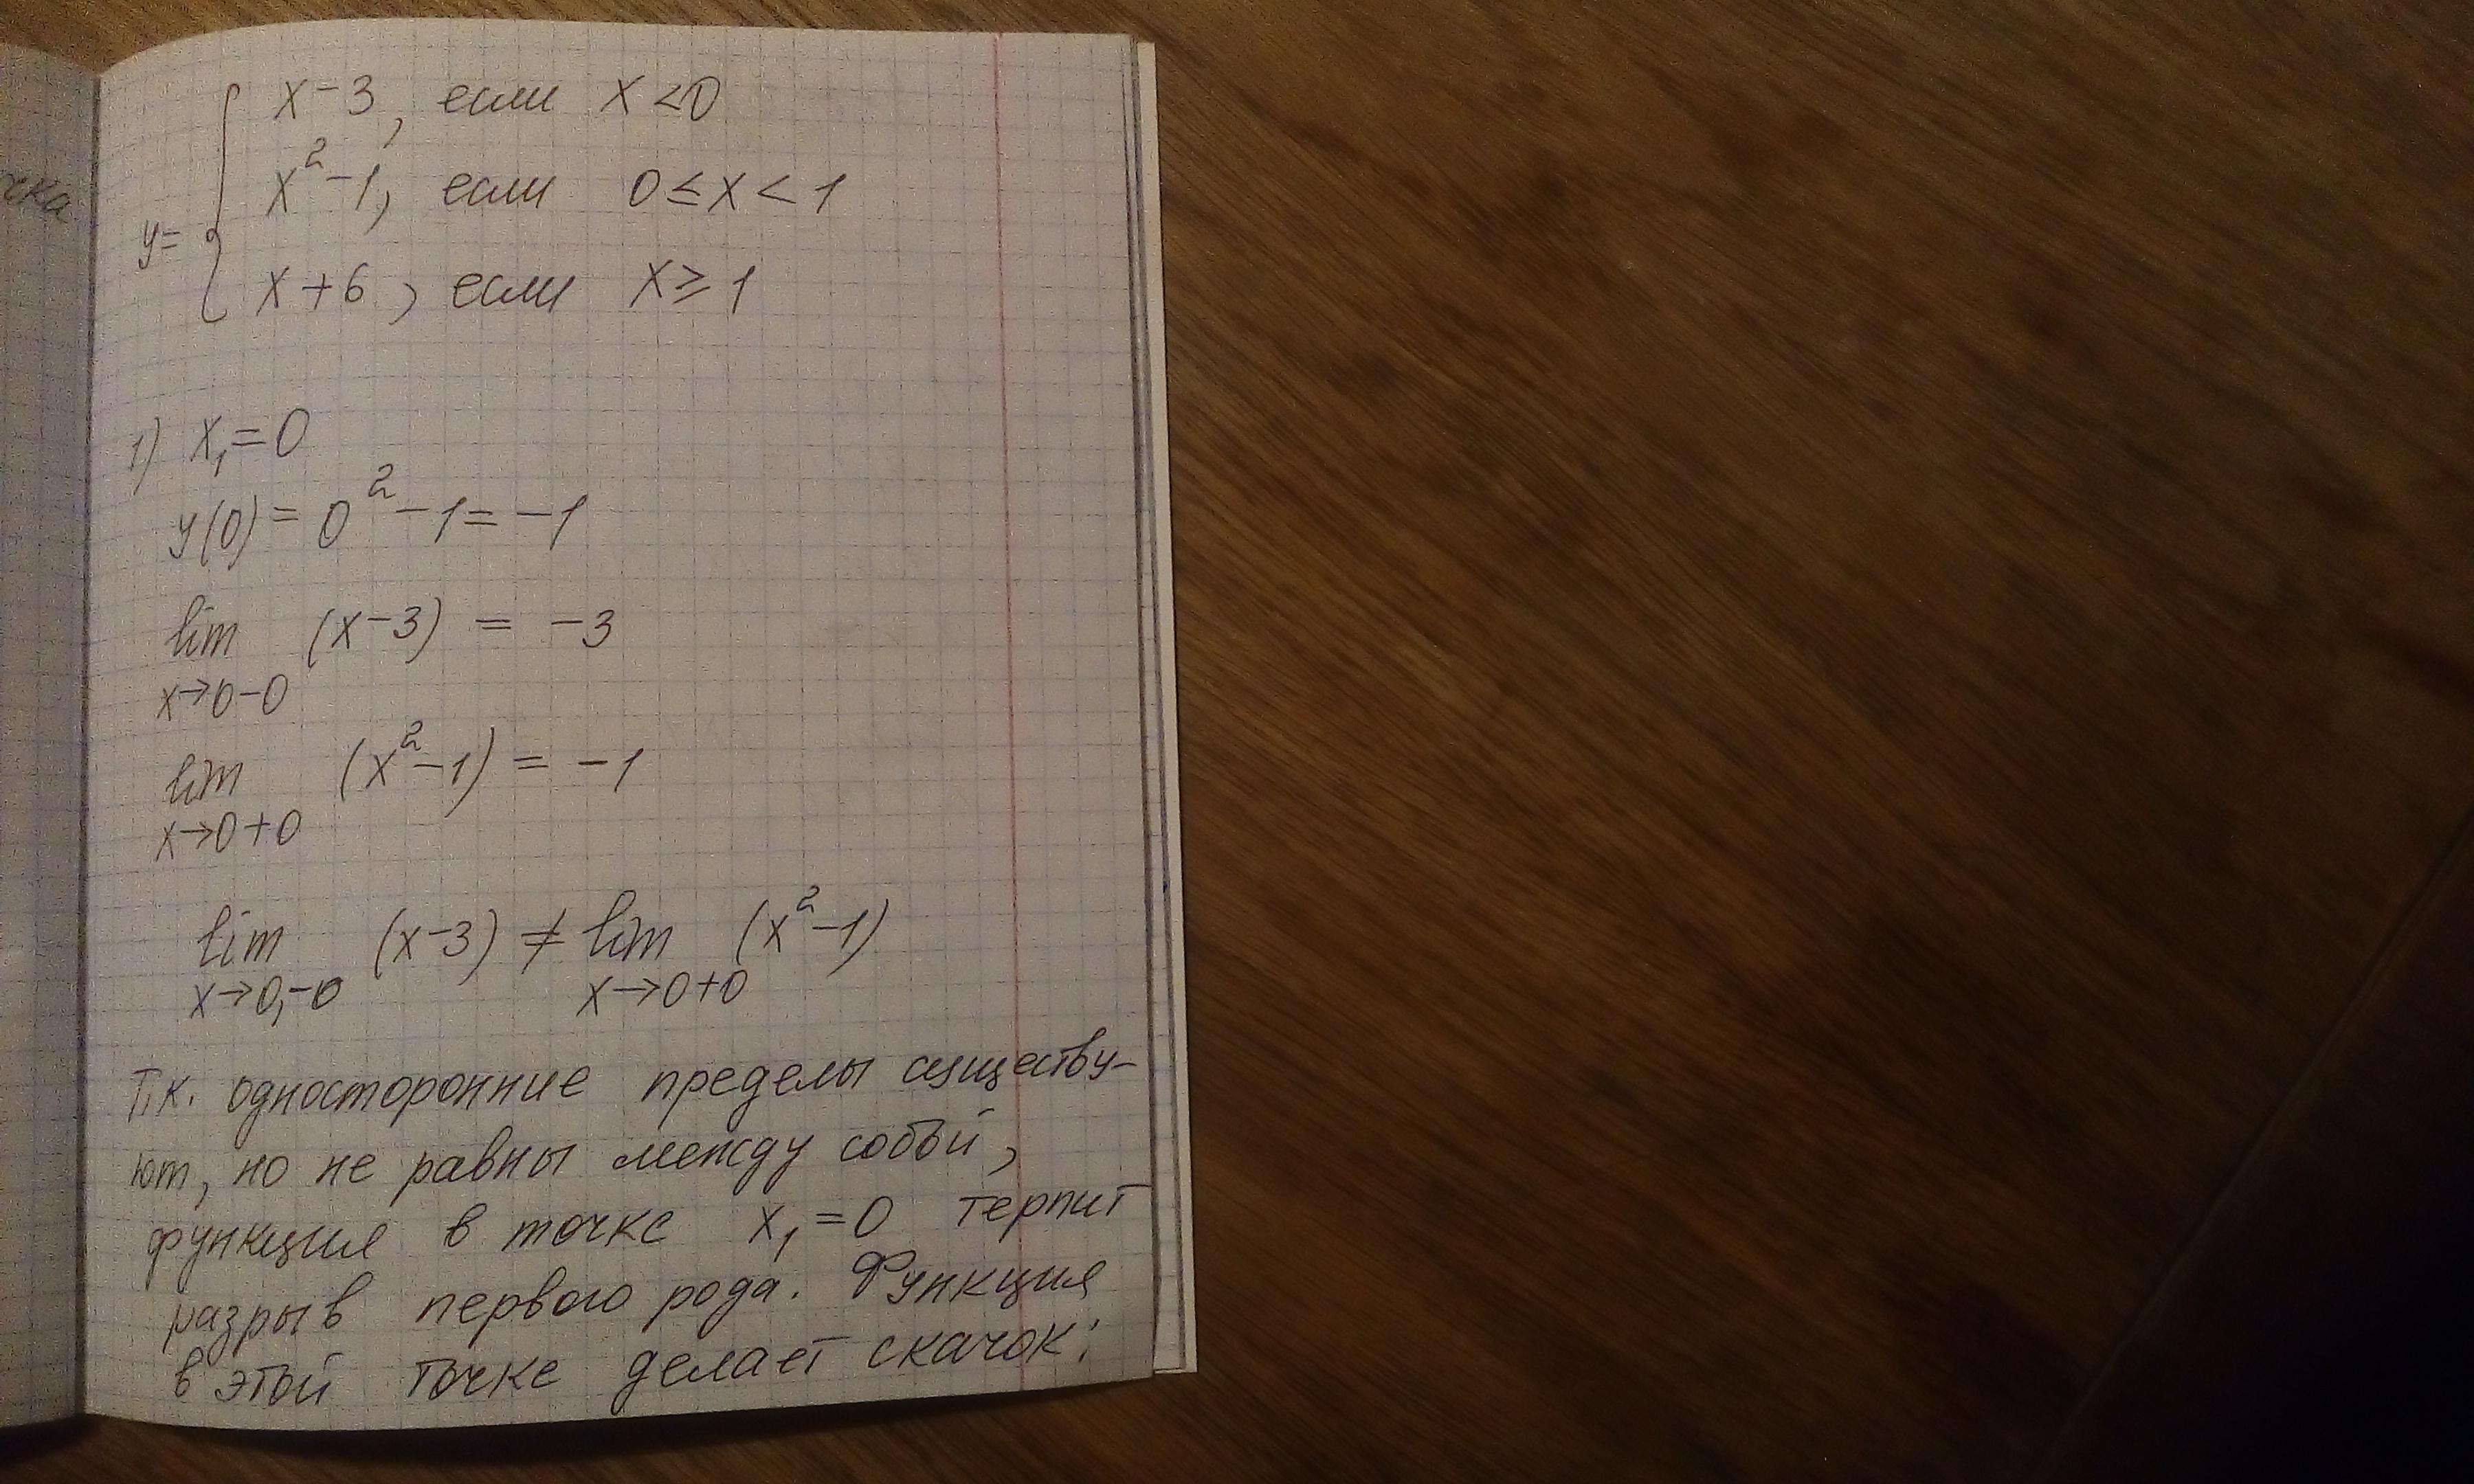 чка
x-3, если x<0
x²-1, если 0≤x<1
y=
x+6, если x≥1
1) x₁=0
y(0)=0²-1=-1
lim (x-3) = -3
x→0-0
lim (x²-1) = -1
x→0+0
lim (x-3) ≠ lim (x²-1)
x→0,-0 x→0+0
Т.к. односторонние пределы существу-
ют, но не равны между собой,
функция в точке x₁=0 терпит
разрыв первого рода. Функция
в этой точке делает скачок: